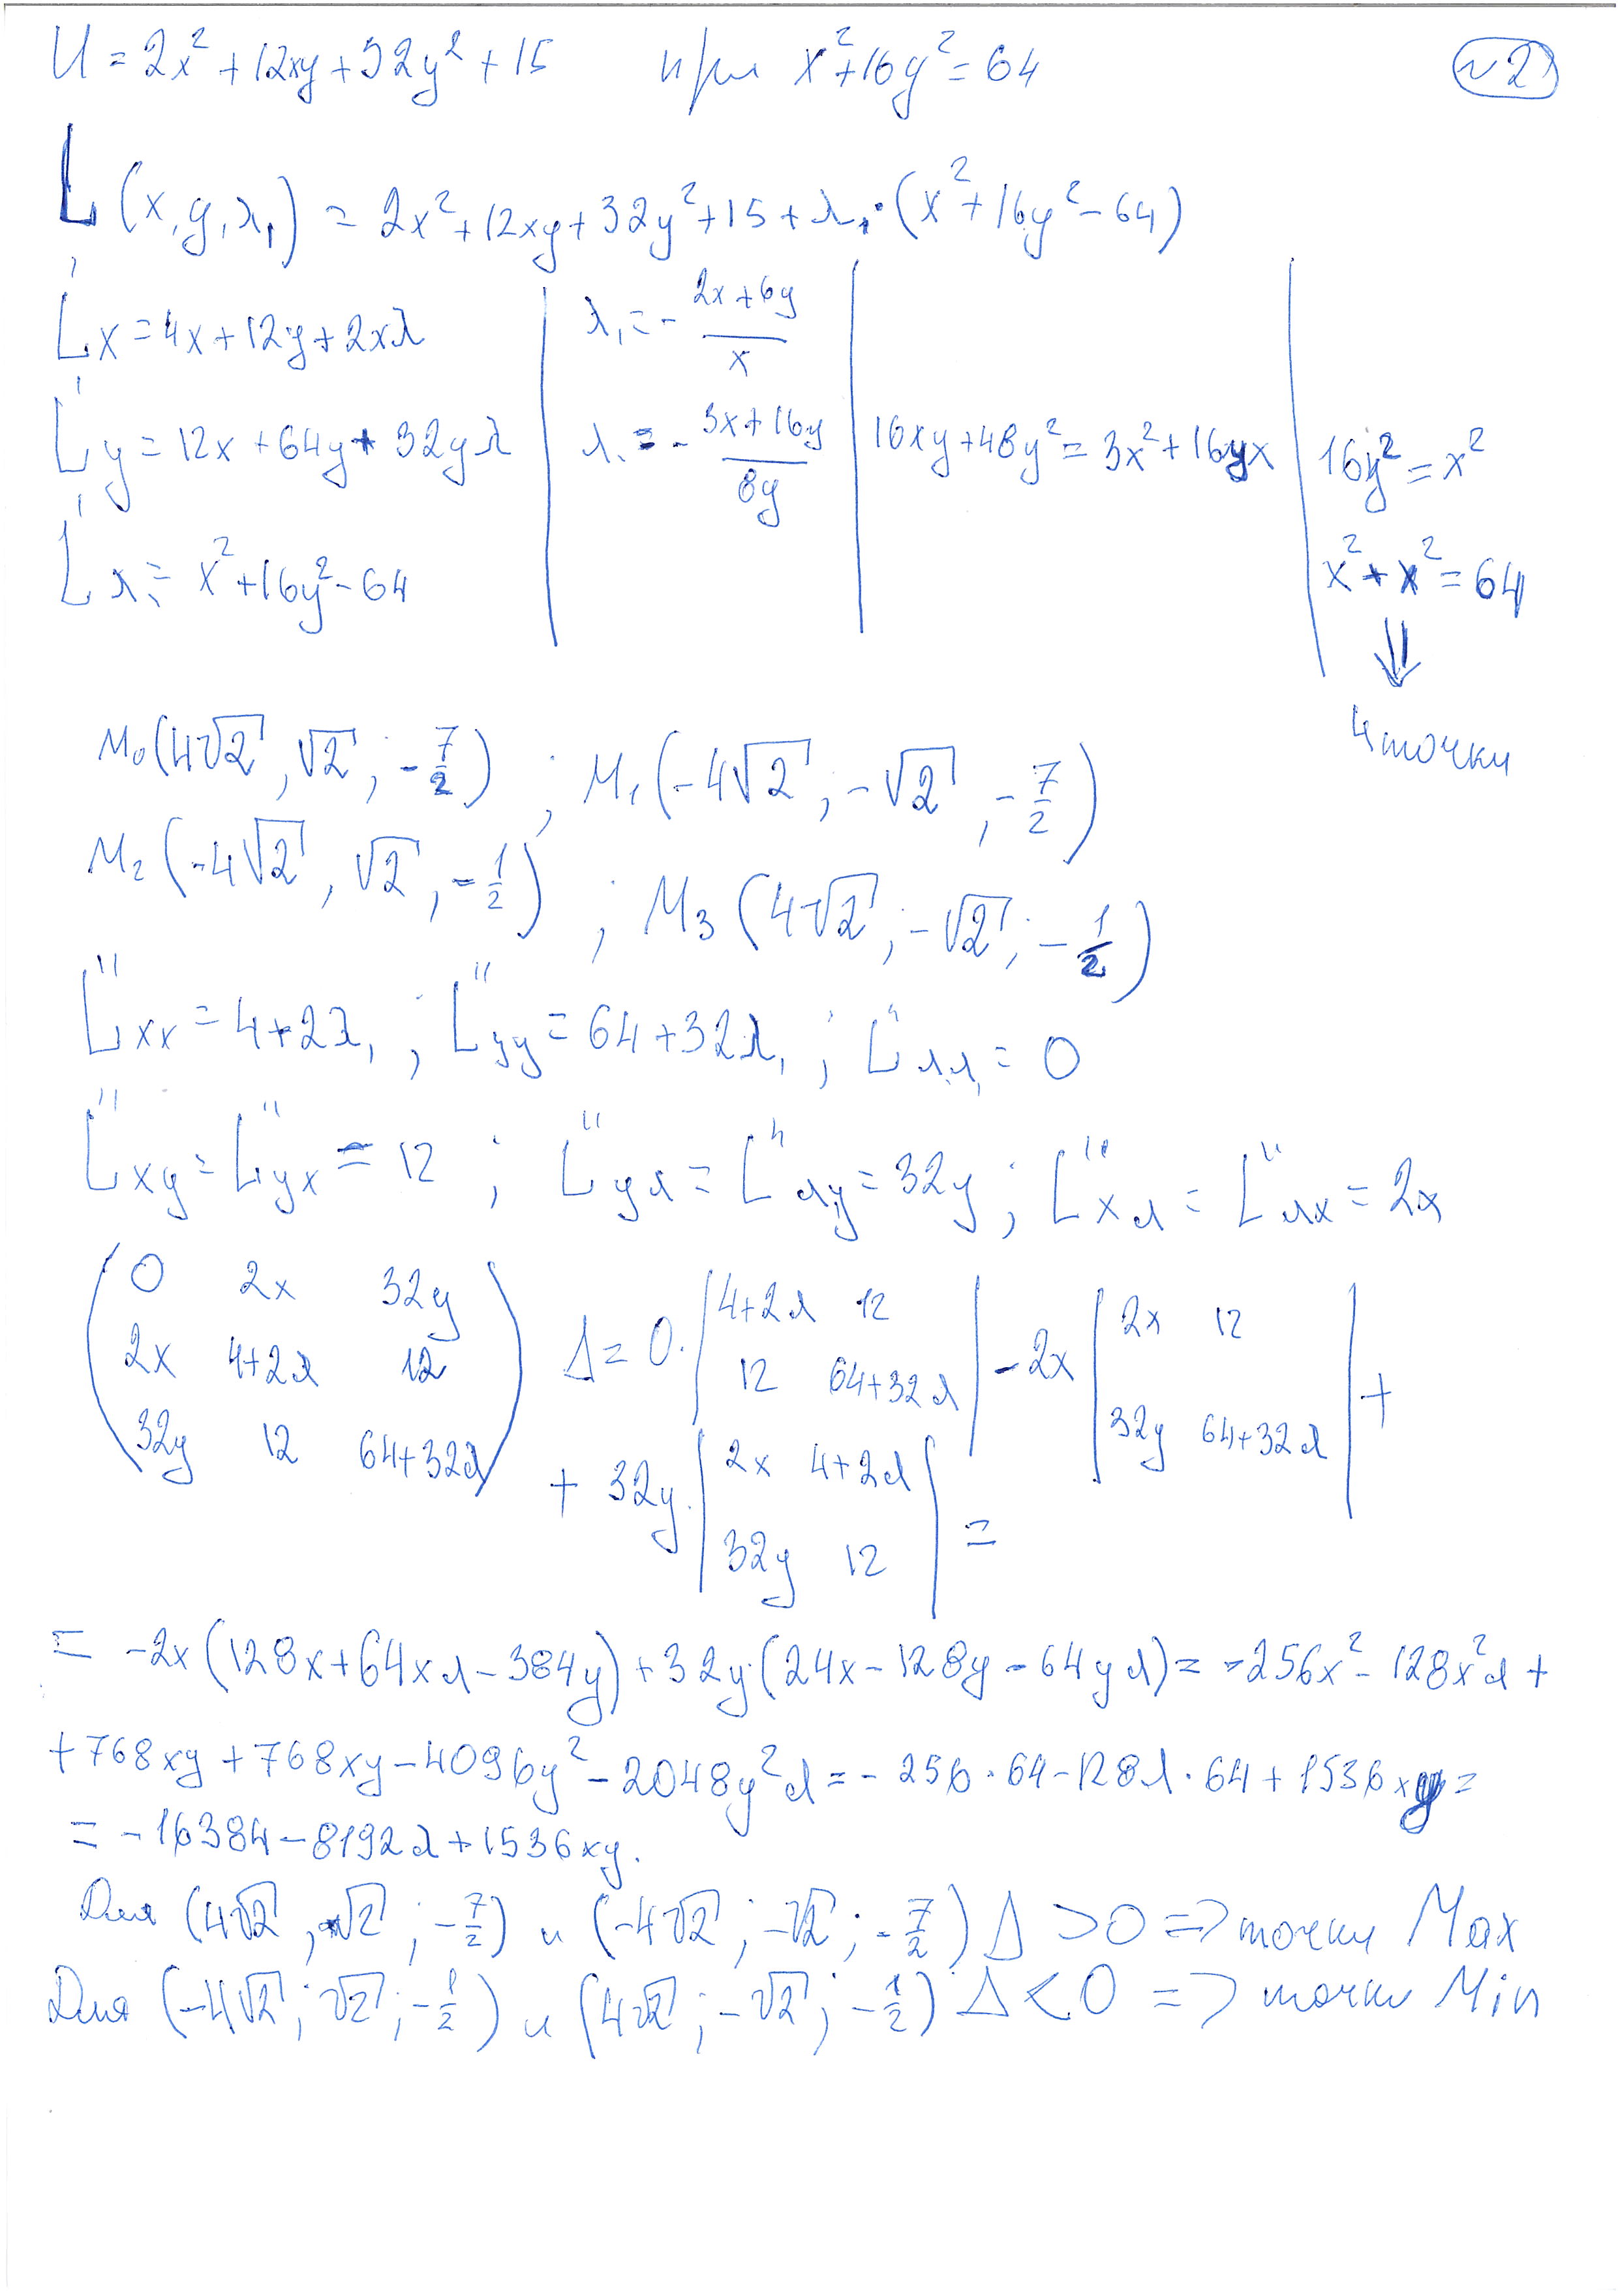 U = 2x² + 12xy + 32y² + 15 при x² + 16y² = 64 №2
L(x, y, λ₁) = 2x² + 12xy + 32y² + 15 + λ₁·(x² + 16y² - 64)
L'x = 4x + 12y + 2xλ | λ₁ = - (2x + 6y)/x |
L'y = 12x + 64y + 32yλ | λ₁ = - (3x + 16y)/8y | 16xy + 48y² = 3x² + 16yx | 16y² = x²
L'λ₁ = x² + 16y² - 64 | x² + x² = 64
⇓
4 точки
M₀(4√2, √2; -7/2) ; M₁(-4√2; -√2, -7/2)
M₂(-4√2, √2, -1/2) ; M₃(4√2; -√2; -1/2)
L''xx = 4 + 2λ₁ ; L''yy = 64 + 32λ₁ ; L''λ₁λ₁ = 0
L''xy = L''yx = 12 ; L''yλ = L''λy = 32y ; L''xλ = L''λx = 2x
(0 2x 32y
2x 4+2λ 12
32y 12 64+32λ)
Δ = 0·|4+2λ 12
12 64+32λ| - 2x |2x 12
32y 64+32λ| +
+ 32y·|2x 4+2λ
32y 12| =
= -2x(128x + 64xλ - 384y) + 32y(24x - 128y - 64yλ) = -256x² - 128x²λ +
+ 768xy + 768xy - 4096y² - 2048y²λ = - 256·64 - 128λ·64 + 1536xy =
= - 16384 - 8192λ + 1536xy.
Для (4√2, √2; -7/2) и (-4√2; -√2; -7/2) Δ > 0 => точки Max
Для (-4√2; √2; -1/2) и (4√2; -√2; -1/2) Δ < 0 => точки Min